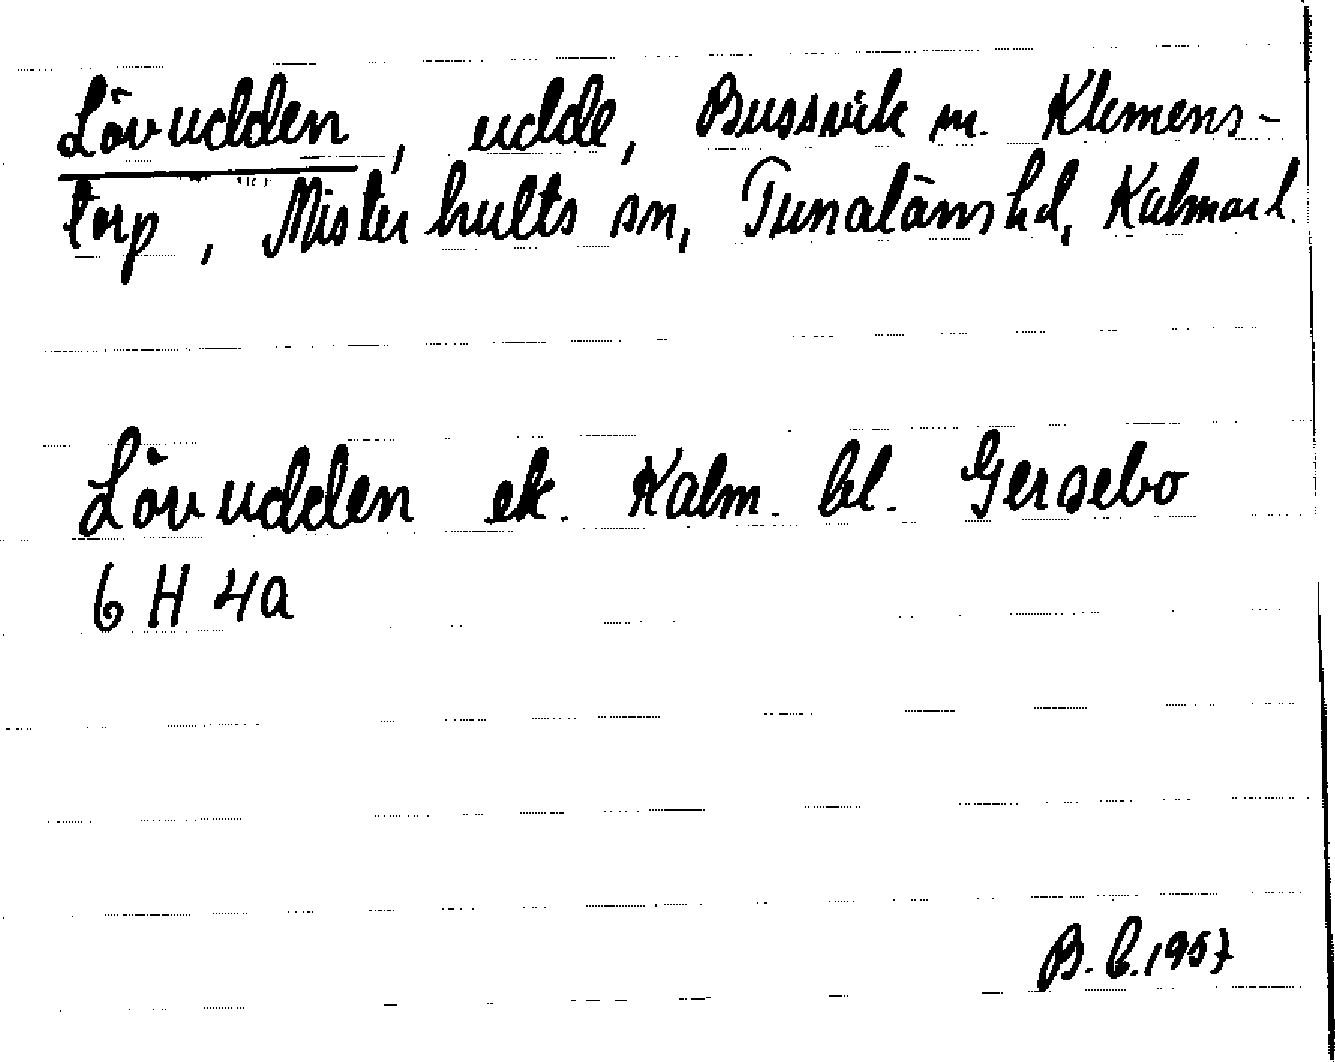 Lövudden, udde, Bussvik m. Klemens-
torp, Misterhults sn, Tunaläns hd, Kalmar l.
Lövudden ek. Kalm. bl. Gersebo
6 H 4a
B. C. 1957